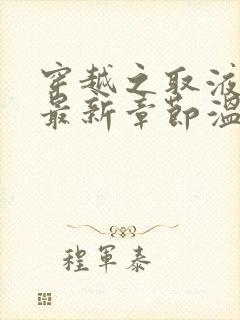 穿越之取液
最新章节温
程军泰